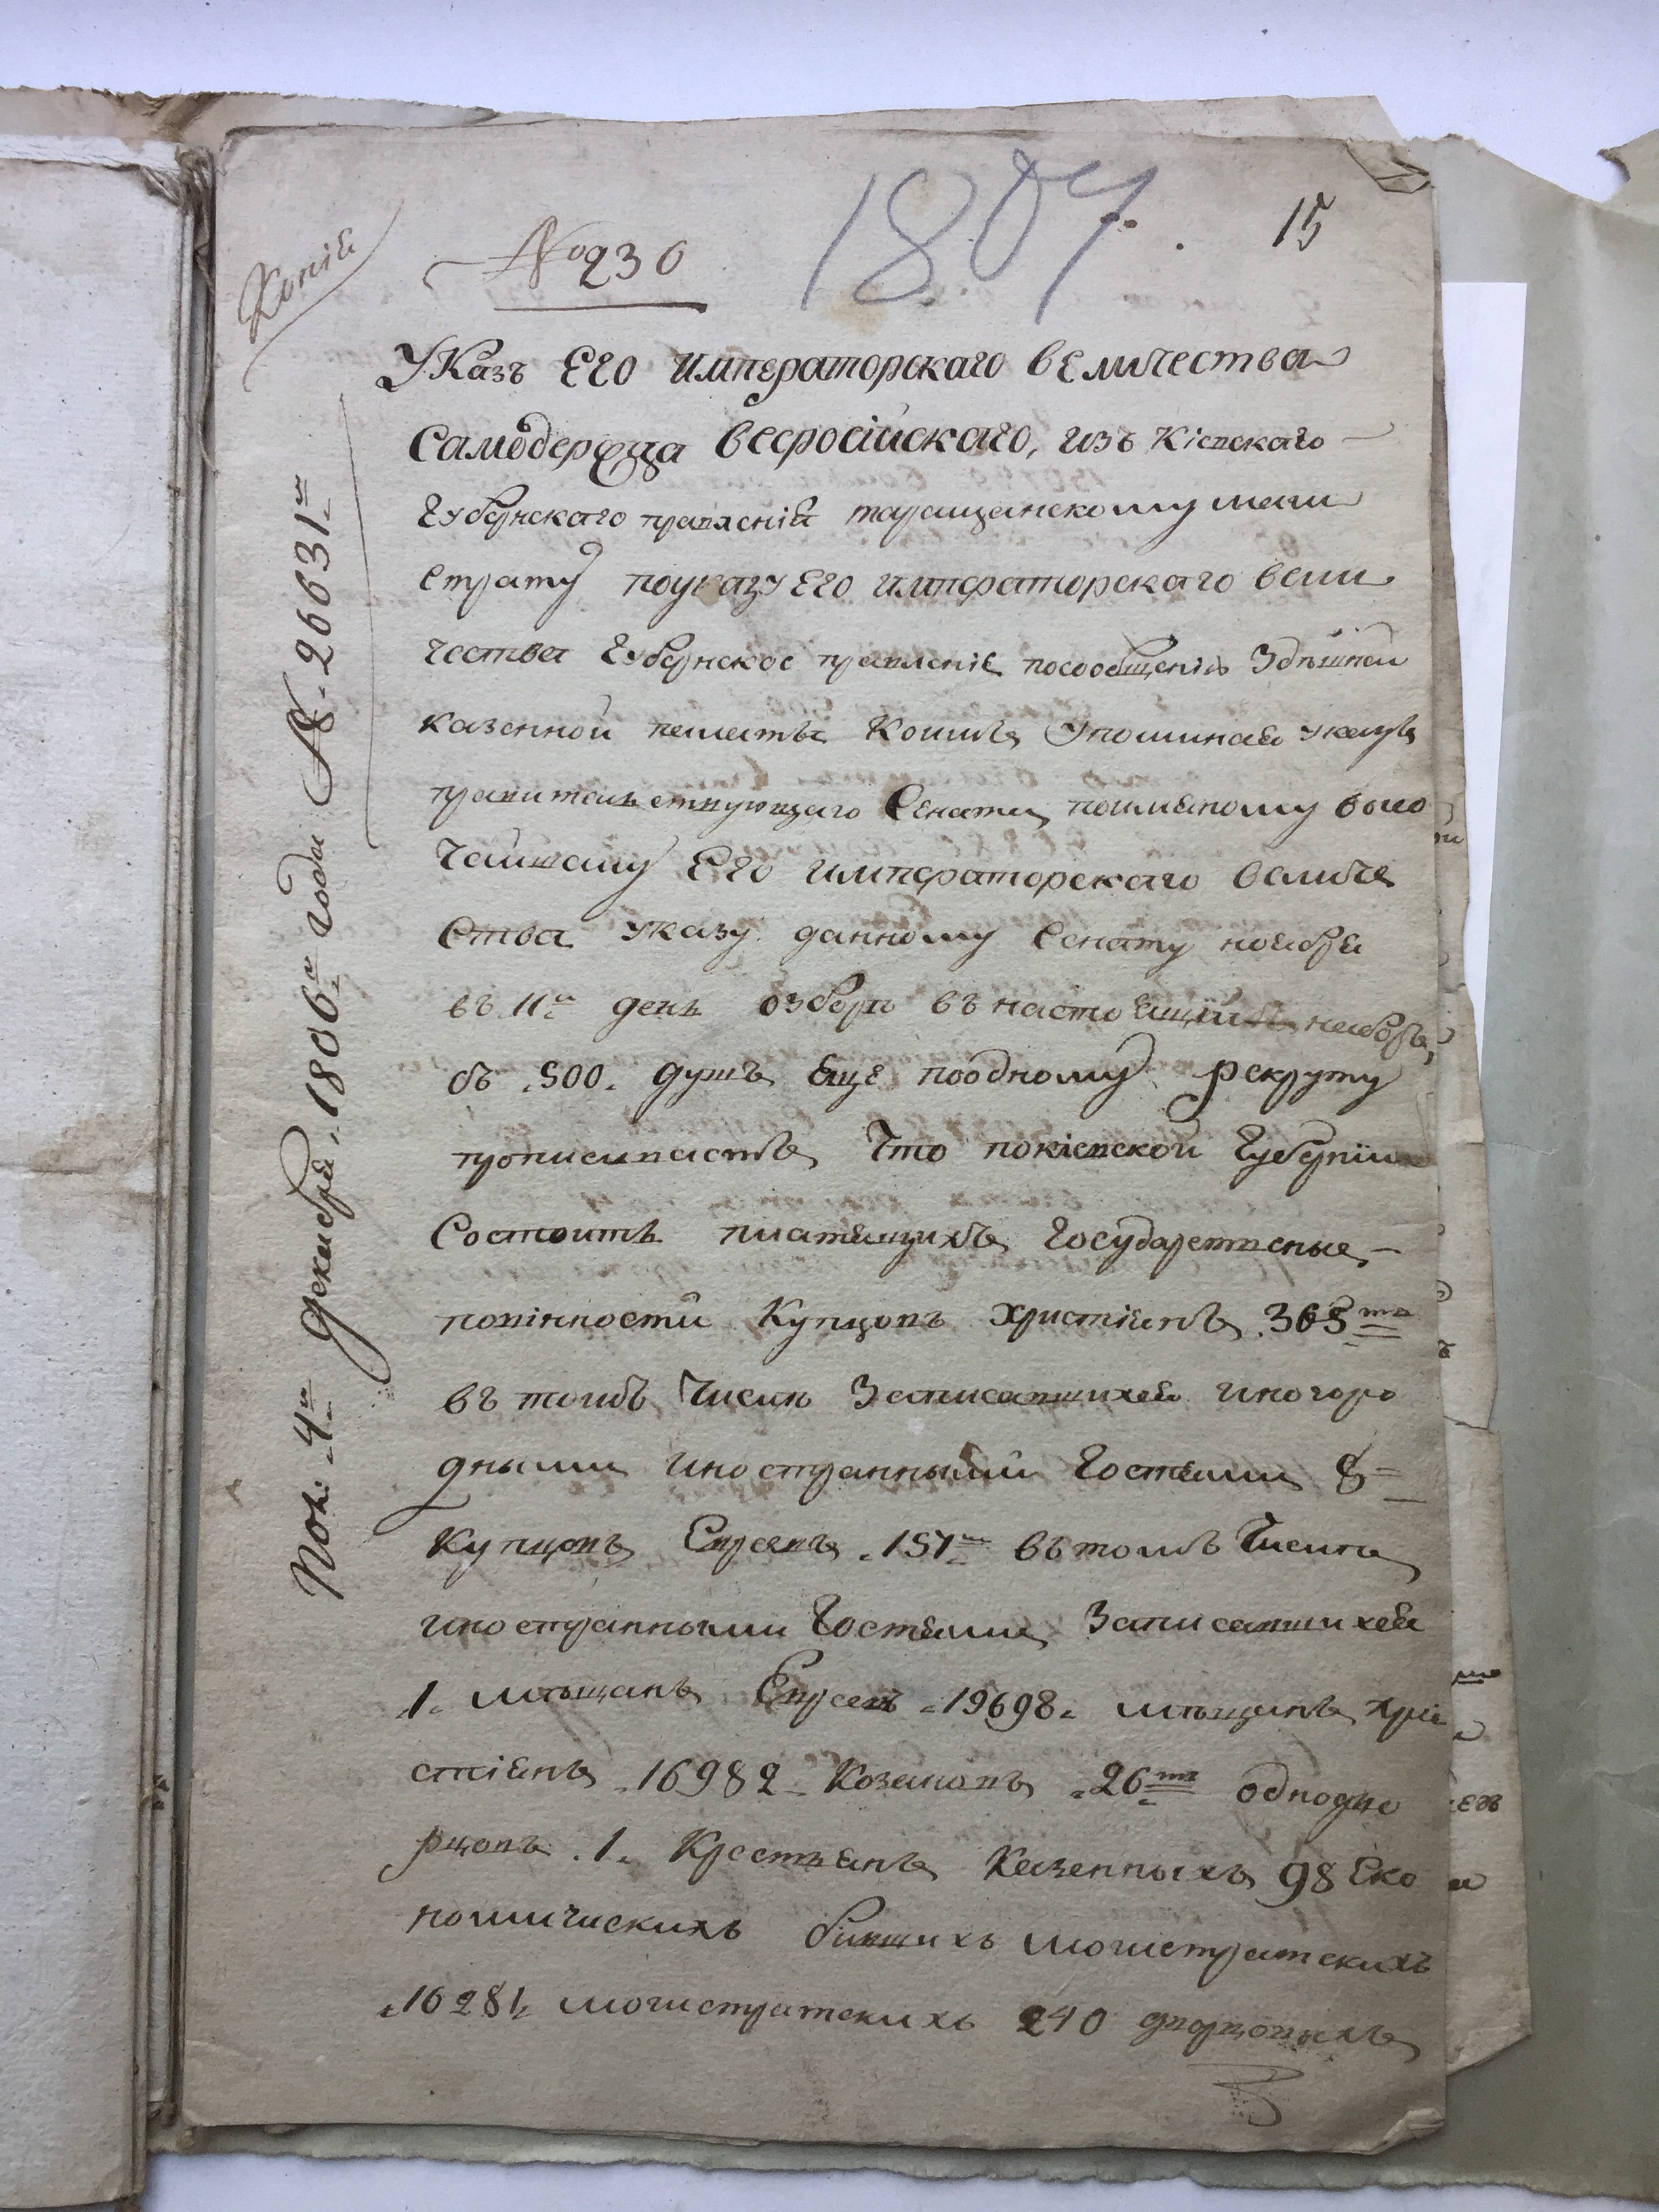 Копія
№ 230
1807.
15
Указъ Его императорскаго величества
Самодержца всеросійскаго, изъ Кіевскаго
губернскаго правленія таращанскому маги
страту поуказу Его императорскаго вели
чества губернское правленіе посообщенію здѣшней
казенной палаты коимъ упоминая указъ
правительствующаго Сената, поимяному высо
чайшему Его императорскаго величе
ства указу данному Сенату ноября
въ 11й день озборѣ въ настоящій наборъ,
съ 500. душъ еще поодному рекруту
прописиваетъ, что покіевской губерніи
Состоитъ платящихъ государственые
повінности купцовъ христіянъ 365ть
въ томъ числѣ записавшихся иногоро
дными иностранными гостями 8
купцовъ Евреевъ 157 въ томъ числѣ
иностранными гостями записавшихся
1. мѣщанъ Евреевъ 19698. мѣщанъ хри
стіянъ 16982 козаковъ 26ть однодво
рцовъ. 1. крестьянъ казенныхъ 98 Еко
номическихъ бившихъ могистратскихъ
16281. могистратскихъ 240 дворцовыхъ
Пол: 4го декабря 1806го года № 26631й